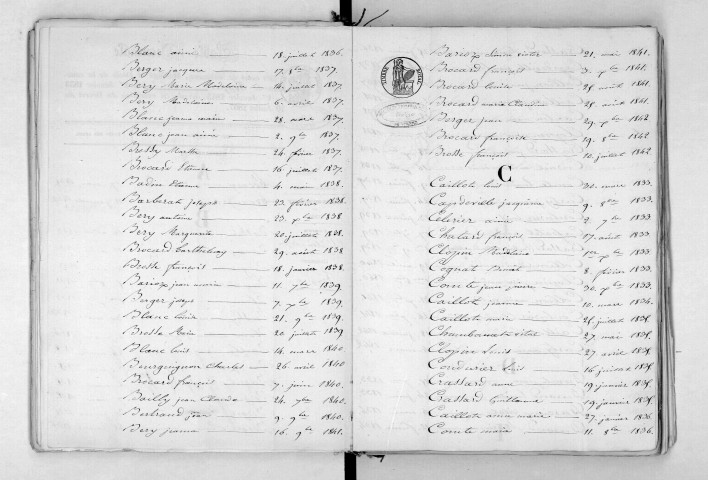 Blanc aimé 18. juillet 1836.
Berger jacques 17. 8bre 1837.
Bery Marie Madelaine 14. juillet 1837.
Bery Madelaine 6. avril 1837.
Blanc jeanne marie 28. mars 1837.
Blanc jean aimé 2. 9bre 1837.
Brossy Marthe 24. février 1837.
Brocard Etienne 16. juillet 1837.
Badou Etienne 4. mars 1838.
Barberat joseph 23. février 1838.
Bery antoine 23. 1838
Bery Marguerite 20. juillet 1838.
Brocard Barthelemy 29. août 1838
Brosse françois 18. janvier 1838.
Barioz jean marie 11. 1839
Berger 7. 1839.
Blanc Louise 21. 9bre 1839.
Brosse Marie 20. juillet 1839
Blanc Louis 14. mars 1840.
Bourguignon Charles 26. avril 1840
Brocard françois 7. juin 1840.
Bailly jean Claude 24. 1840.
Bertrand jean 9. 9bre 1840.
Bery jeanne 16. 9bre 1841.
Barioz victor 21. mai 1841.
Brocard françois 3. 1841.
Brocard Louise 25. août 1841.
Brocard marie Claudine 25. août 1841.
Berger jean 29. 1842
Brocard françoise 19. 8bre 1842
Brosse françois 10. juillet 1842
C
Caillot Louis 30. mars 1833.
Capdeville jacqueline 9. 8bre 1833.
Celerier aimé 2. 7bre 1833
Chatard françois 17. août 1833
Clopin Madelaine 1er 1833
Cognat Benoit 8. février 1833.
Comte jean pierre 30. 1833.
Caillot jeanne 10. mars 1834.
Caillot marie 25. juillet 1835.
27. mai 1835.
Clopin Louis 27. avril 1835.
Condurier Louis 16. juillet 1835.
Crassard anne 19. janvier 1835.
Crassard Guillaume 19. janvier 1835.
Caillot anne marie 27. janvier 1836
Comte marie 11. 8bre 1836.